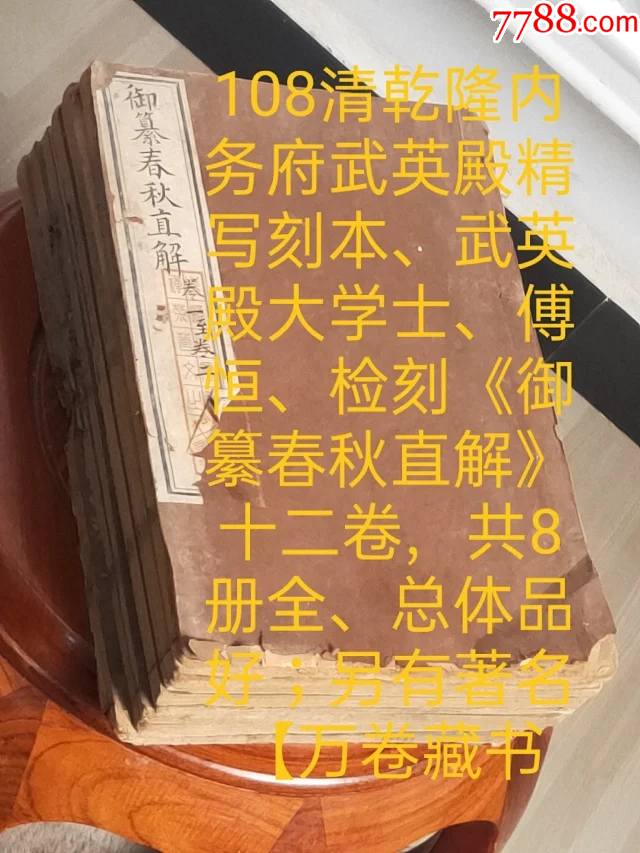 7788.com
108清乾隆内
务府武英殿精
写刻本、武英
殿大学士、傅
恒、检刻《御
纂春秋直解》
十二卷，共8
册全、总体品
好；另有著名
【万卷藏书
御纂春秋直解
卷一至卷二